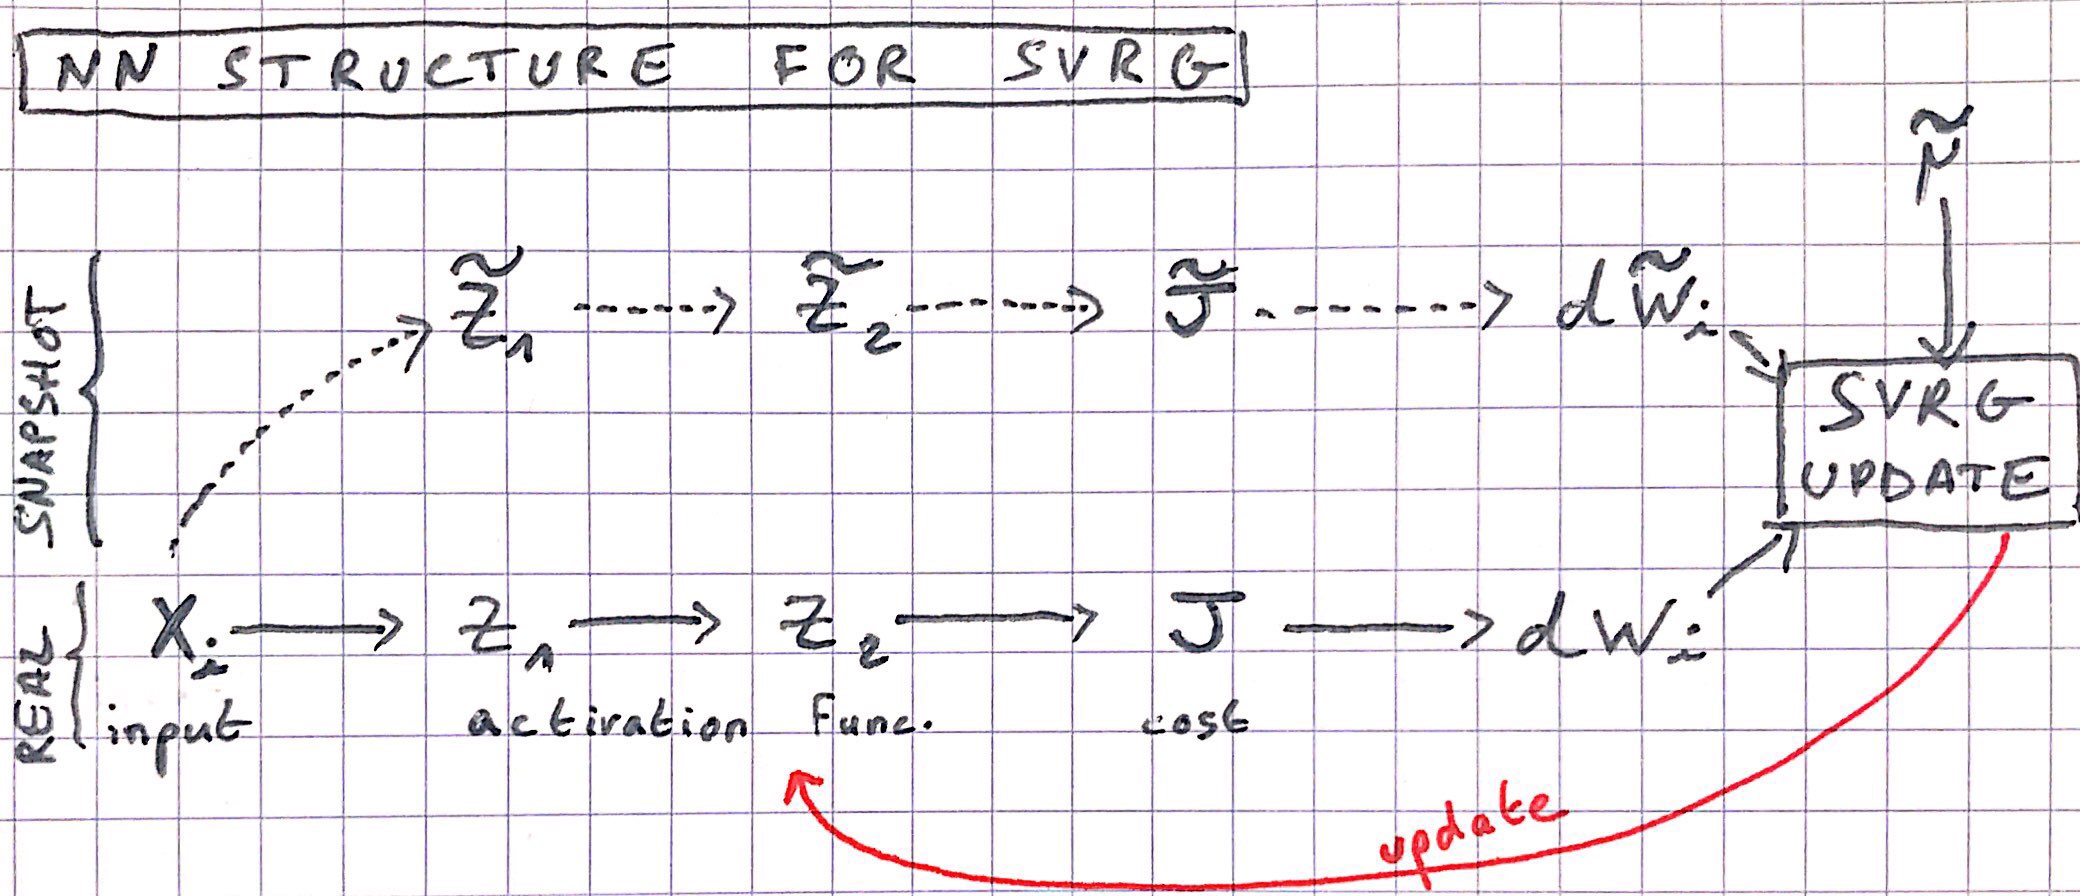 NN STRUCTURE FOR SVRG
μ̃
SNAPSHOT
Z̃₁ Z̃₂ J̃ dW̃ᵢ
SVRG
UPDATE
REAL
Xᵢ Z₁ Z₂ J dWᵢ
input activation func. cost
update